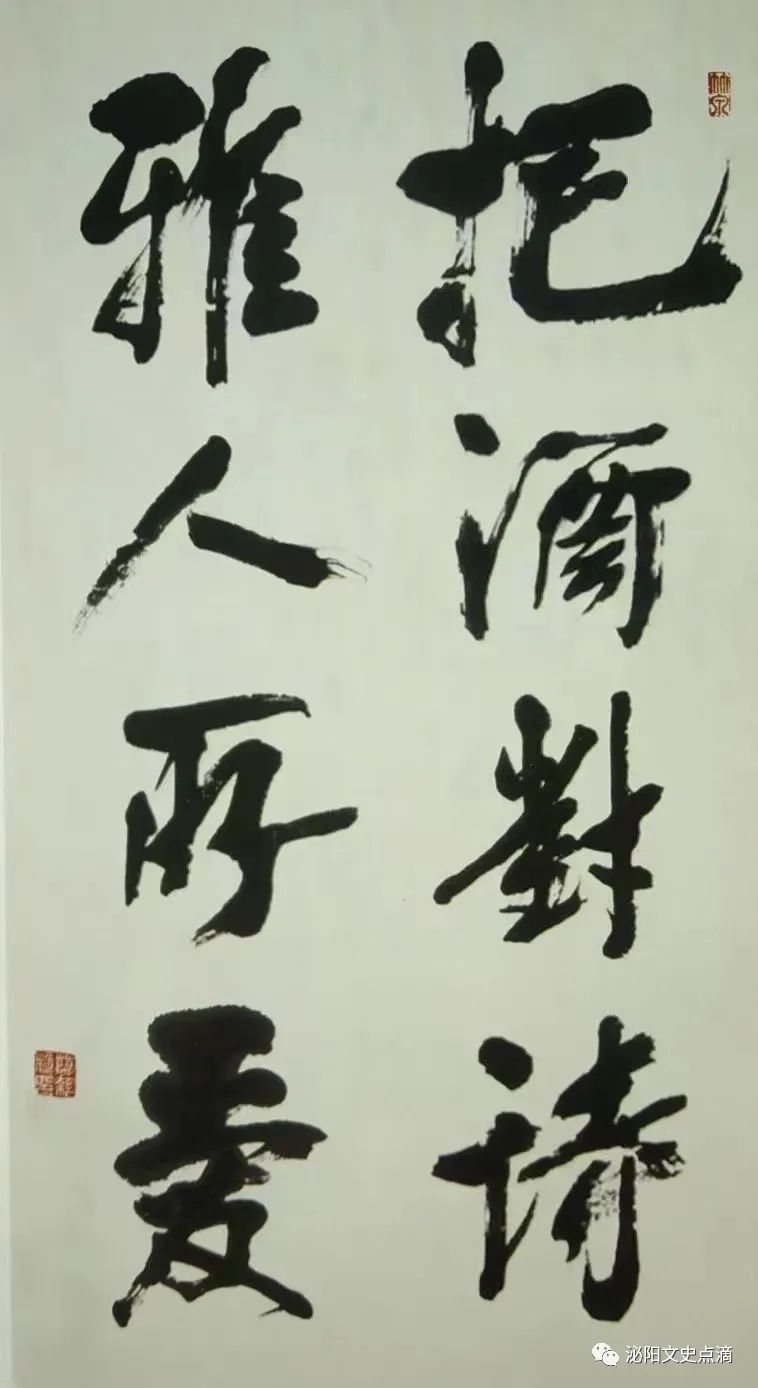 把酒對诗
雅人所爱
泌阳文史点滴